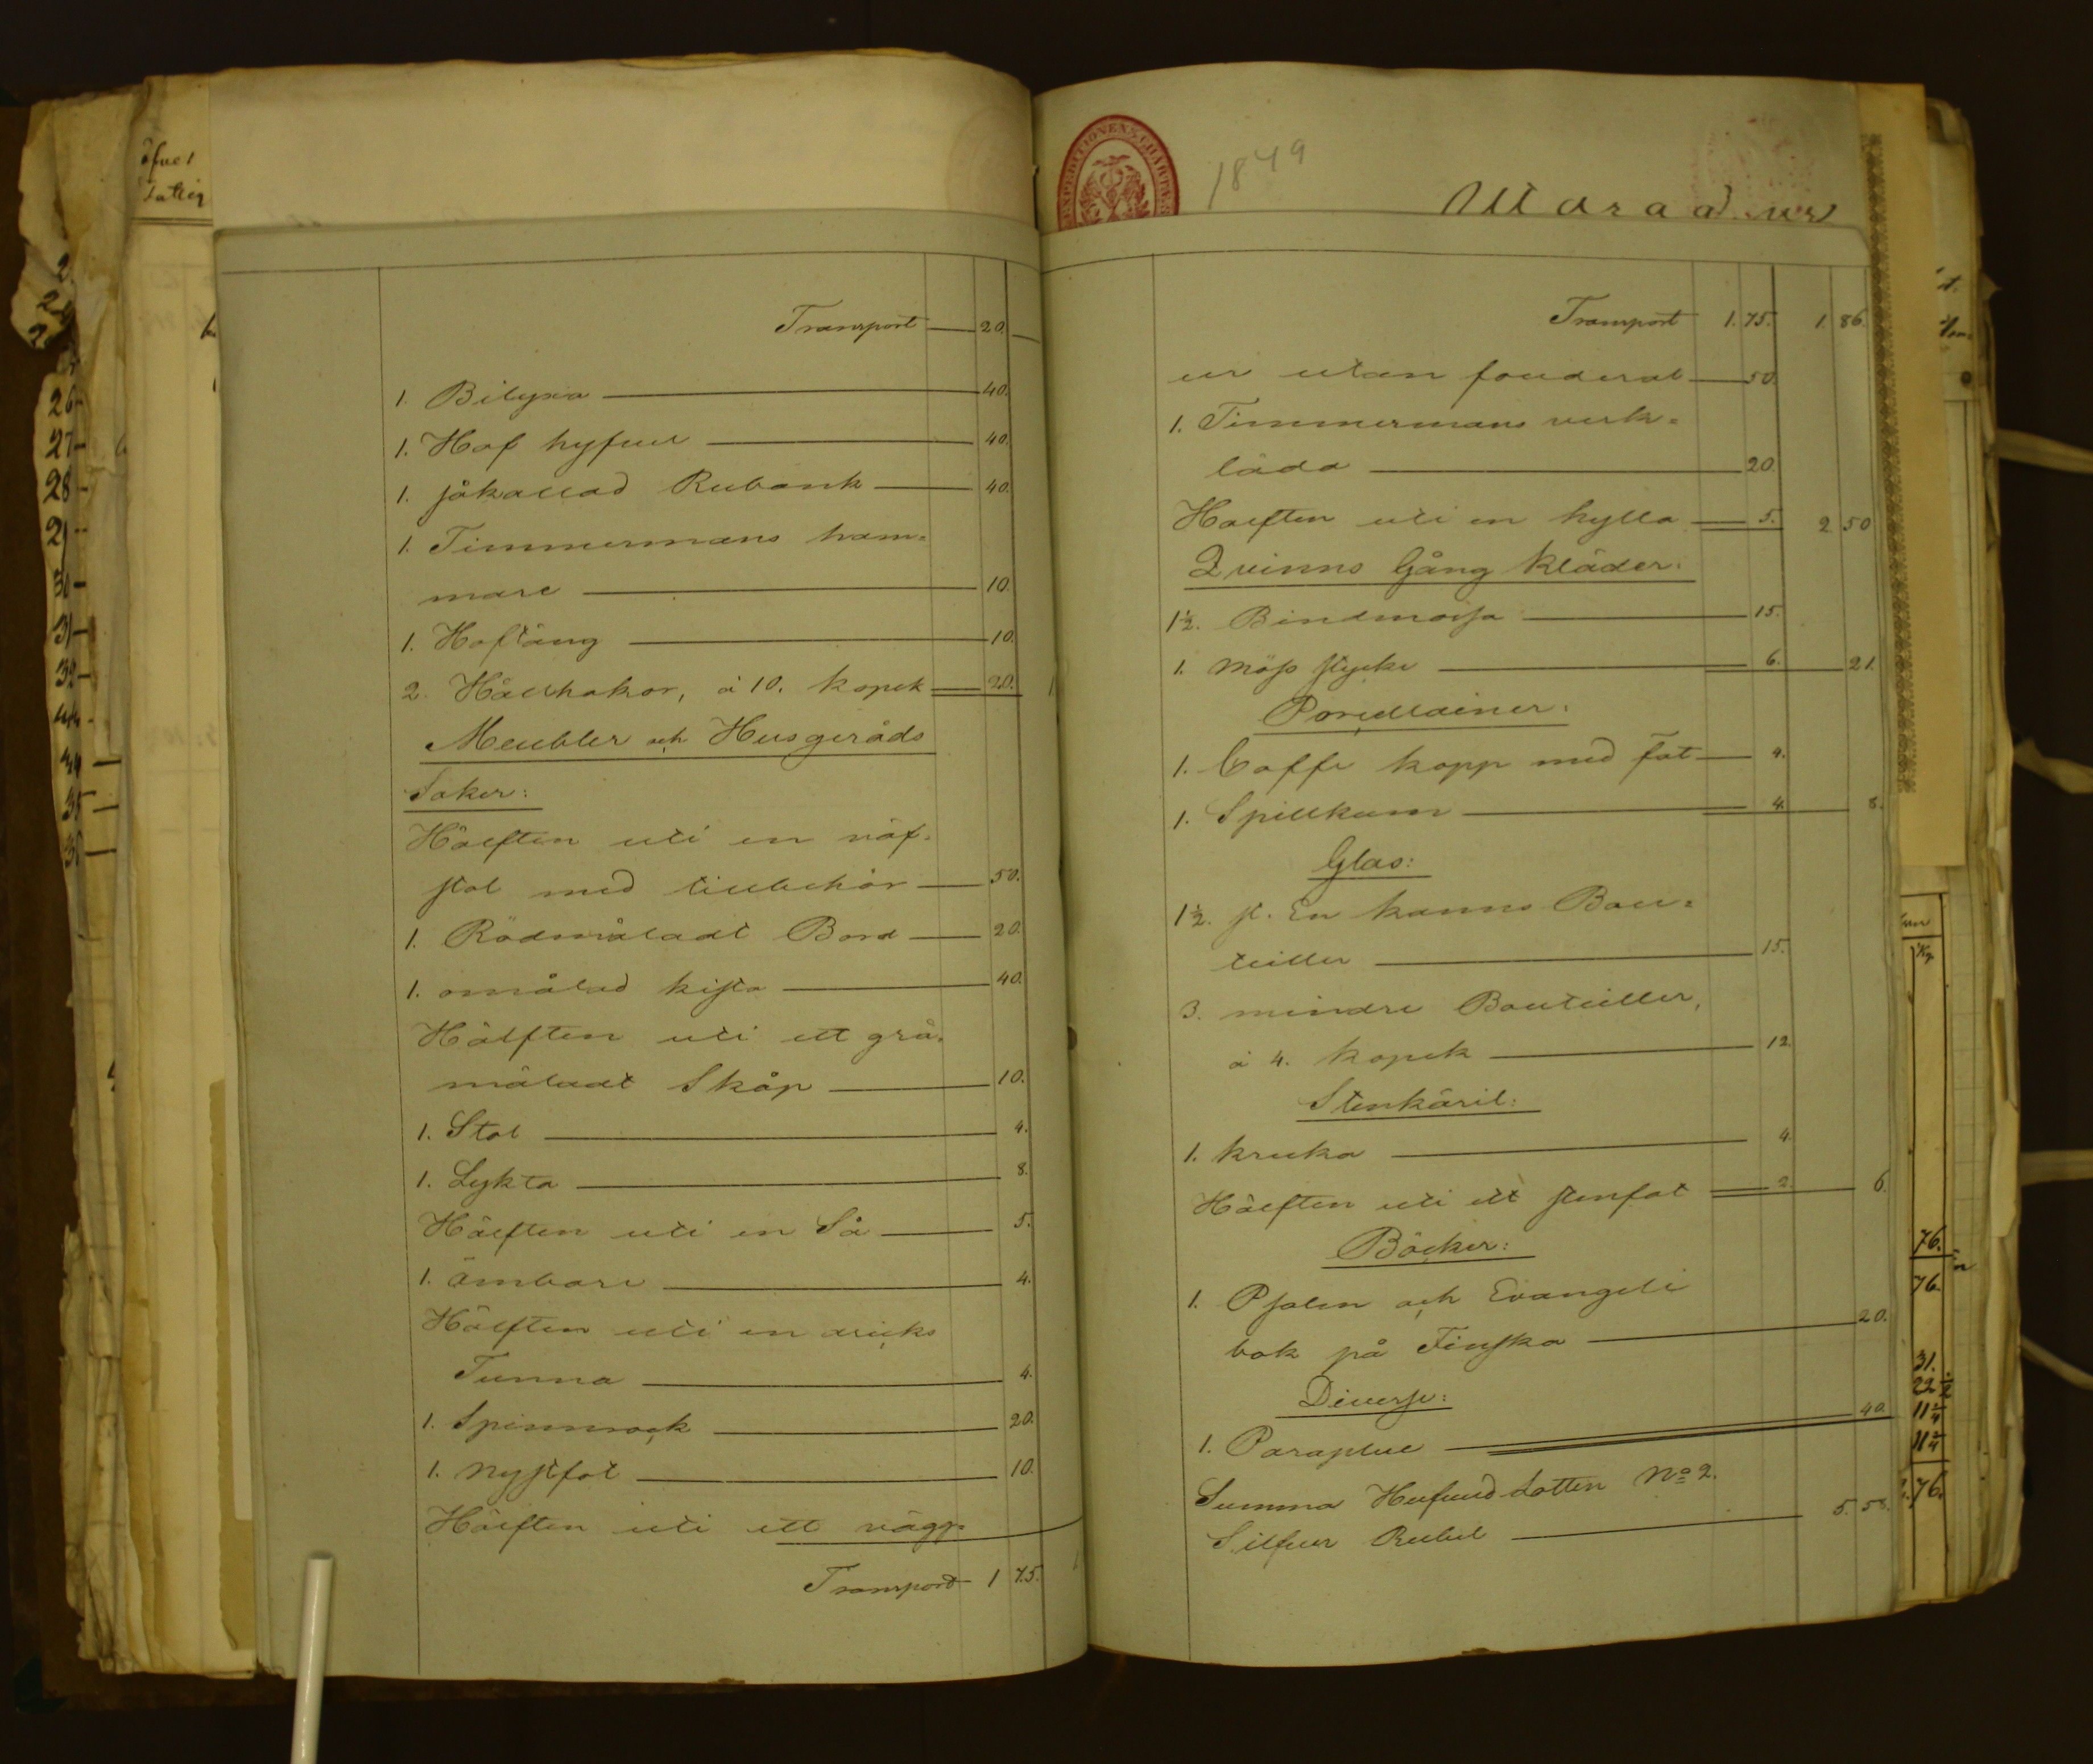 Transport 20.
1. Bilyxa 40.
1. Hof hyfvel 40.
1. såkallad Rubank 40.
1. Timmermans ham=
mare 10.
1. Hoftång 10.
2. Hällhakar, à 10. kopek 20.
Meubler och Husgeråds
Saker:
Hälften uti en väf-
stol med tillbehör 50.
1. Rödmåladt Bord 20.
1. omålad kista 40.
Hälften uti ett grå-
måladt Skåp 10.
1. Stol 4.
1. Lykta 8.
Hälften uti en Så 5.
1. ämbare 4.
Hälften uti en dricks
Tunna 4.
1. Spinnrock 20.
1. nystfot 10.
Hälften uti ett vägg-
Transport 1 75.
1849
Transport 1. 75. 1. 86.
ur utan fouderal 50.
1. Timmermans verk=
låda 20.
Hälften uti en hylla 5. 2 50
Qvinns Gång Kläder:
1½. Bindmössa 15.
1. möss stycke 6. 21.
Porcellainer:
1. Caffe kopp med fat 4.
1. Spillkum 4. 8.
Glas:
1½. st. En kanns Bou=
teiller 15.
3. mindre Bouteiller,
à 4. kopek 12.
Stenkäril:
1. kruka 4.
Hälften uti ett stenfat 2. 6.
Böcker:
1. Psalm och Evangeli
bok på Finska 20.
Diverse:
1. Paraplue 40.
Summa Hufvud Lotten No 2.
Silfver Rubel 5. 58.
26
27
28
31
76.
76.
31.
22½
11¼
11¼
76.